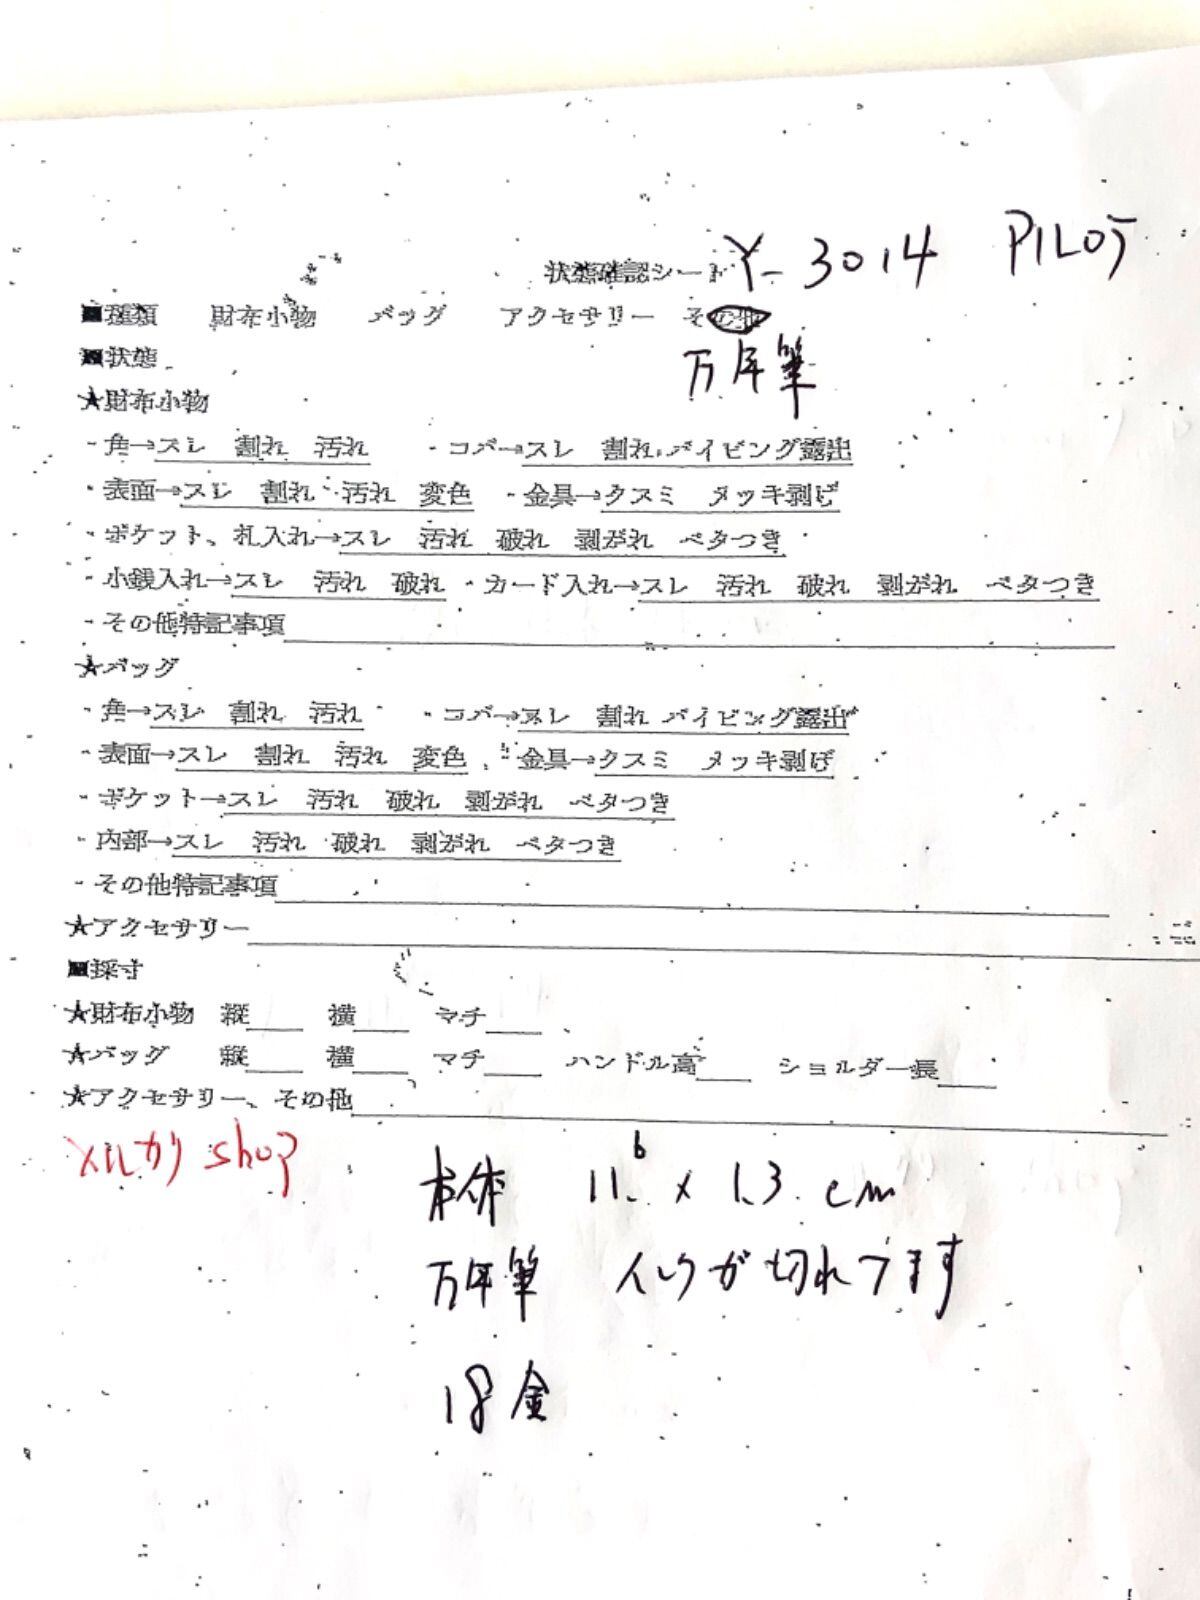 状態確認シート Y-3014 PILOT
■種類 財布小物 バッグ アクセサリー その他
■状態 万年筆
★財布小物
・角→スレ 割れ 汚れ ・コバ→スレ 割れ パイピング露出
・表面→スレ 割れ 汚れ 変色 ・金具→クスミ メッキ剥げ
・ポケット、札入れ→スレ 汚れ 破れ 剥がれ ベタつき
・小銭入れ→スレ 汚れ 破れ ・カード入れ→スレ 汚れ 破れ 剥がれ ベタつき
・その他特記事項
★バッグ
・角→スレ 割れ 汚れ ・コバ→スレ 割れ パイピング露出
・表面→スレ 割れ 汚れ 変色 ・金具→クスミ メッキ剥げ
・ポケット→スレ 汚れ 破れ 剥がれ ベタつき
・内部→スレ 汚れ 破れ 剥がれ ベタつき
・その他特記事項
★アクセサリー
■採寸
★財布小物 縦 横 マチ
★バッグ 縦 横 マチ ハンドル高 ショルダー長
★アクセサリー、その他
メルカリ shop
本体 11.6 x 1.3 cm
万年筆 インクが切れてます
18金